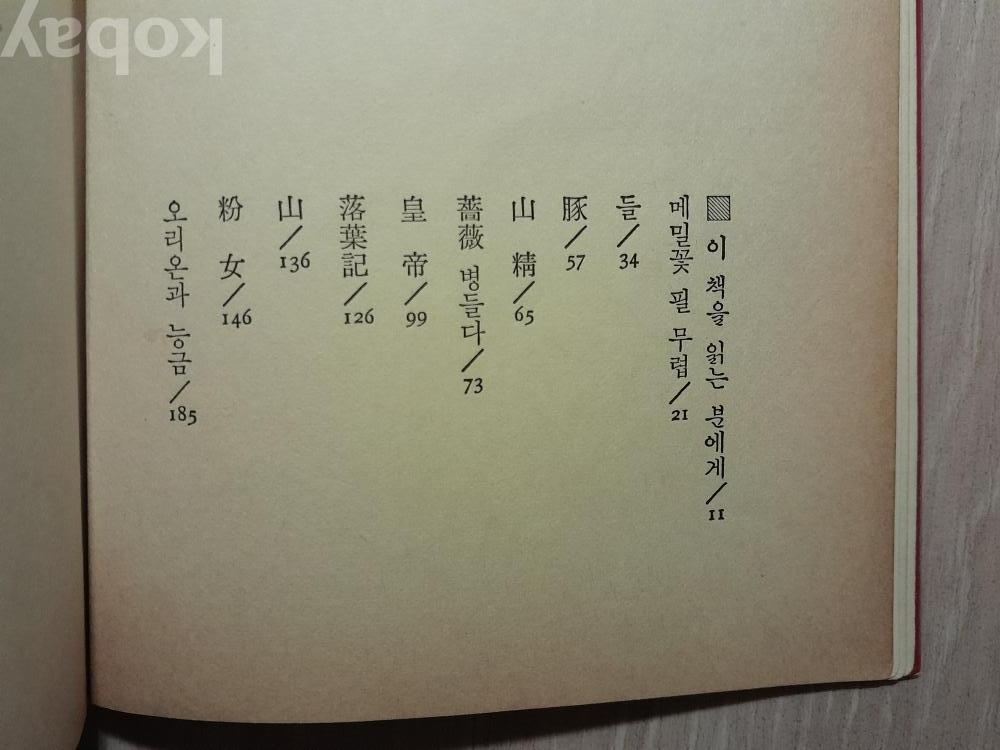 ▨ 이 책을 읽는 분에게/11
메밀꽃 필 무렵/21
들/34
豚/57
山 精/65
薔薇 병들다/73
皇 帝/99
落葉記/126
山/136
粉 女/146
오리온과 능금/185
kobay